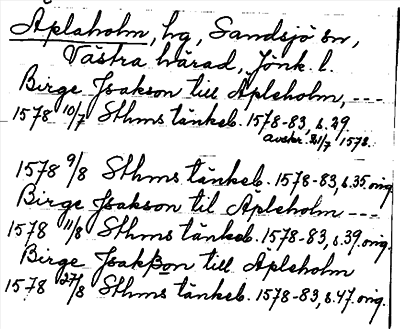 Äplaholm, hg, Sandsjö sn,
Västra härad, Jönk. l.
Birge Jsakson till Äpleholm, ---
1578 10/7 Sthms tänkeb. 1578-83, s. 29.
avskr. 21/7 1578.
1578 9/8 Sthms tänkeb. 1578-83, s. 35. orig.
Birge Jsakson til Äpleholm ---
1578 11/8 Sthms tänkeb. 1578-83, s. 39. orig.
Birge Jsakßon till Äpleholm
1578 27/8 Sthms tänkeb. 1578-83, s. 47. orig.